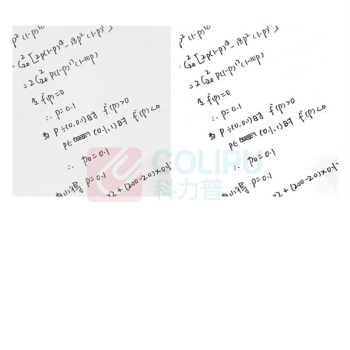 p²(1-p)¹⁸
= C²₂₀[2p(1-p)¹⁸-18p²(1-p)¹⁷]
= 2C²₂₀ p(1-p)¹⁷(1-10p)
令 f'(p)=0
∴ p=0.1
当 p∈(0,0.1)时 f'(p)>0
p∈(0.1,1)时 f'(p)<0
∴ p₀=0.1
p=0.1
×2+(200-20)×0.1
p²(1-p)¹⁸
C²₂₀[2p(1-p)¹⁸-18p²(1-p)¹⁷]
=2C²₂₀ p(1-p)¹⁷(1-10p)
令 f'(p)=0
∴ p=0.1
当 p∈(0,0.1)时 f'(p)>0
p∈(0.1,1)时 f'(p)<0
∴ p₀=0.1
p=0.1
×2+(200-20)×0.1
COLIPU
科力普